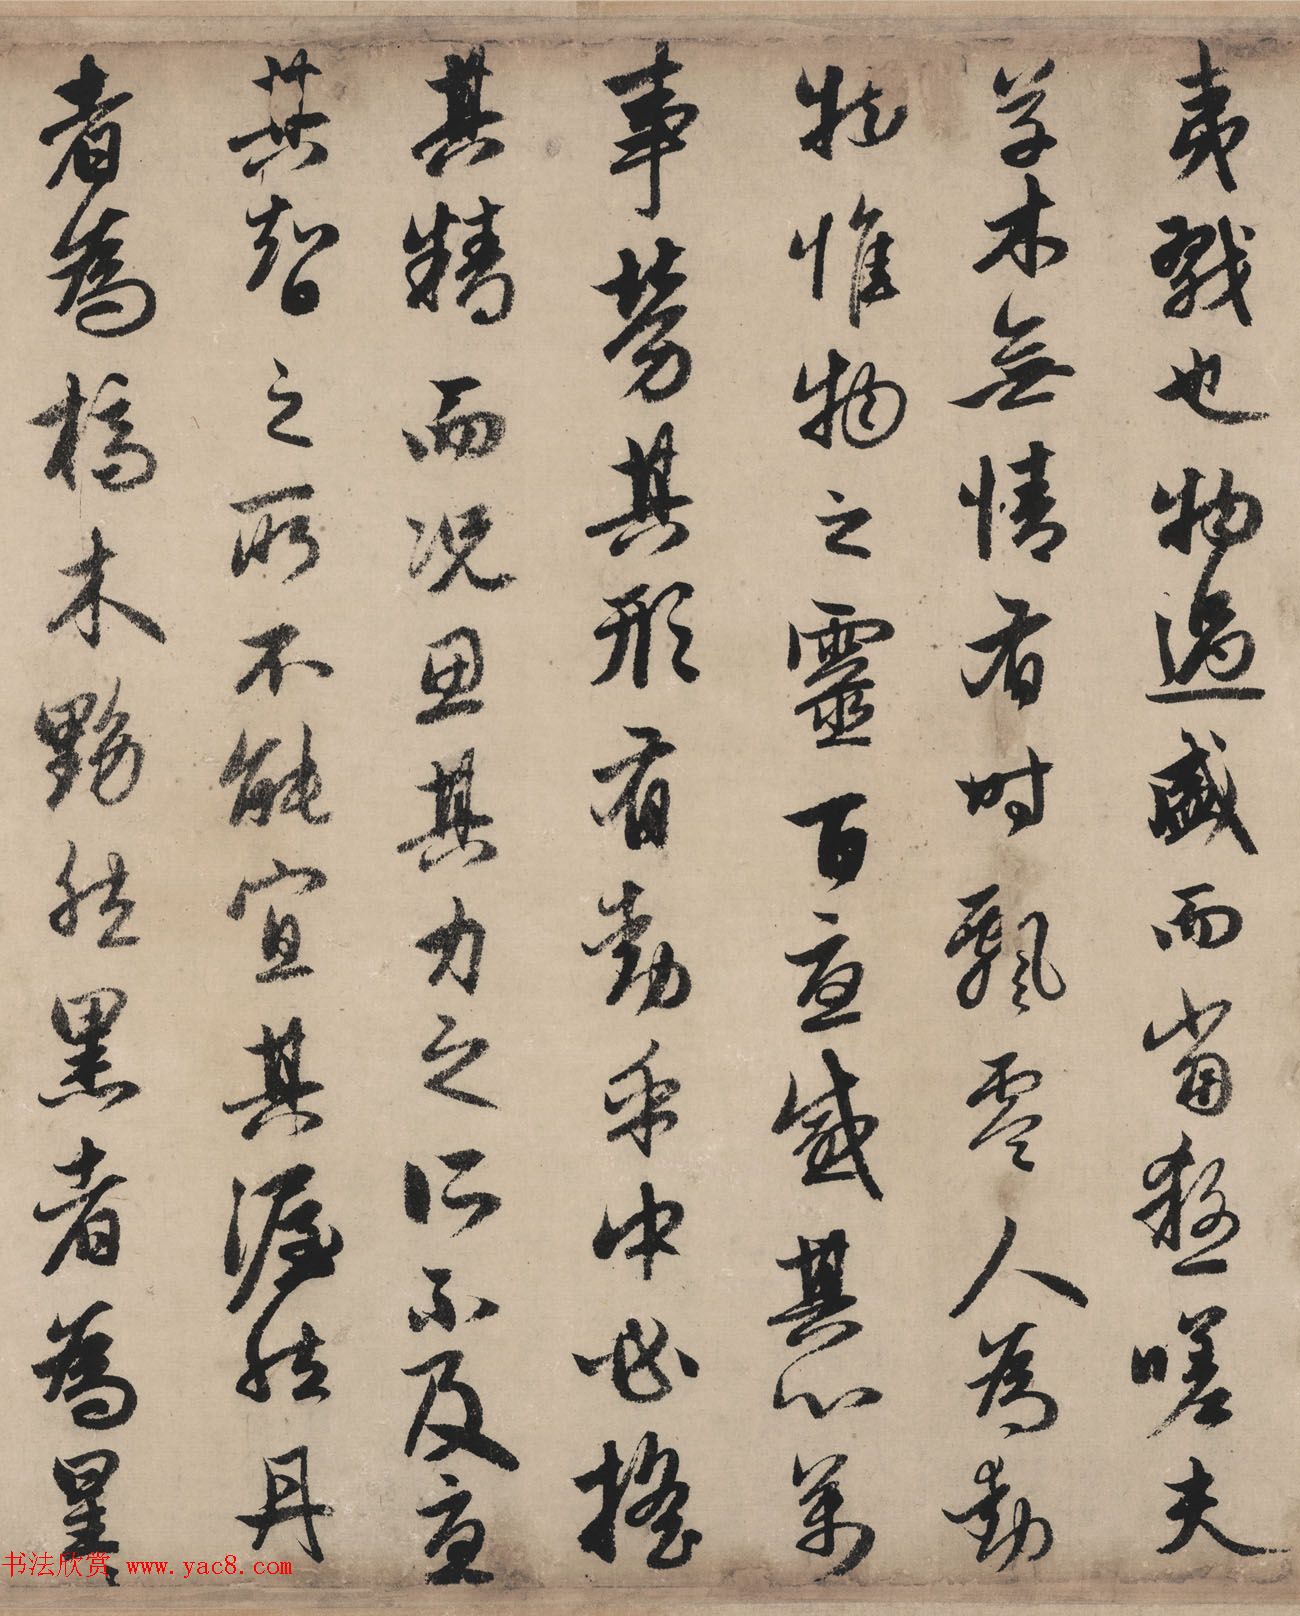 夷戮也物過盛而當殺嗟夫
草木無情有時飄零人為動
物惟物之靈百憂感其心萬
事勞其形有動乎中必搖
其精而況思其力之所不及憂
其智之所不能宜其渥然丹
者為槁木黟然黑者為星〻
书法欣赏 www.yac8.com